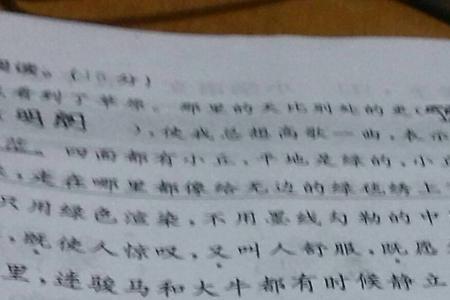 阅读。（10分）
看到了草原。那里的天比别处的更（
明朗　），使我总想高歌一曲，表示
四面都有小丘，平地是绿的，小丘
走在哪里都像给无边的绿毯绣上
只用绿色渲染，不用墨线勾勒的中
，既使人惊叹，又叫人舒服，既愿
里，连骏马和大牛都有时候静立